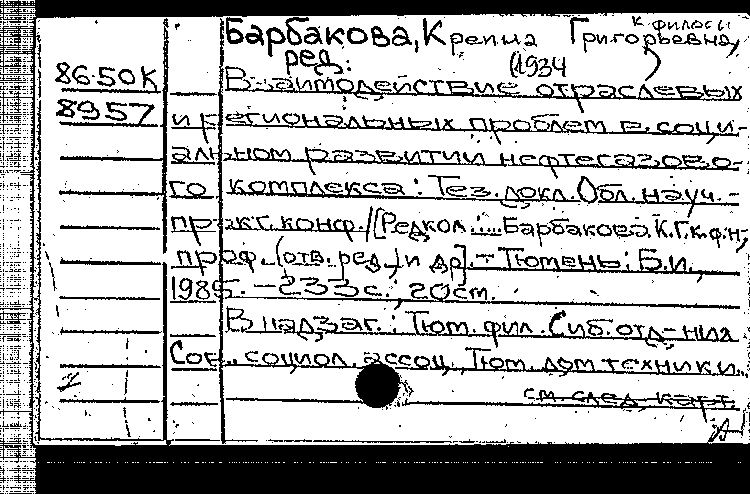 к филосы
Барбакова, К репна Григорьевна,
ред. (1934 )
86-50К Взаимодействие отраслевых
8957 и региональных проблем в соци-
альном развитии нефтегазово-
го комплекса: Тез. докл. Обл. науч.-
практ. конф. /[Редкол.:... Барбакова К.Г. к.ф.н,
проф. (отв. ред.) и др]. - Тюмень: Б.и.,
1985. - 233 с.; 20 см.
В надзаг.: Тюм. фил. Сиб. отд-ния
Сов. социол. ассоц., Тюм. дом техники.
см. след. карт.